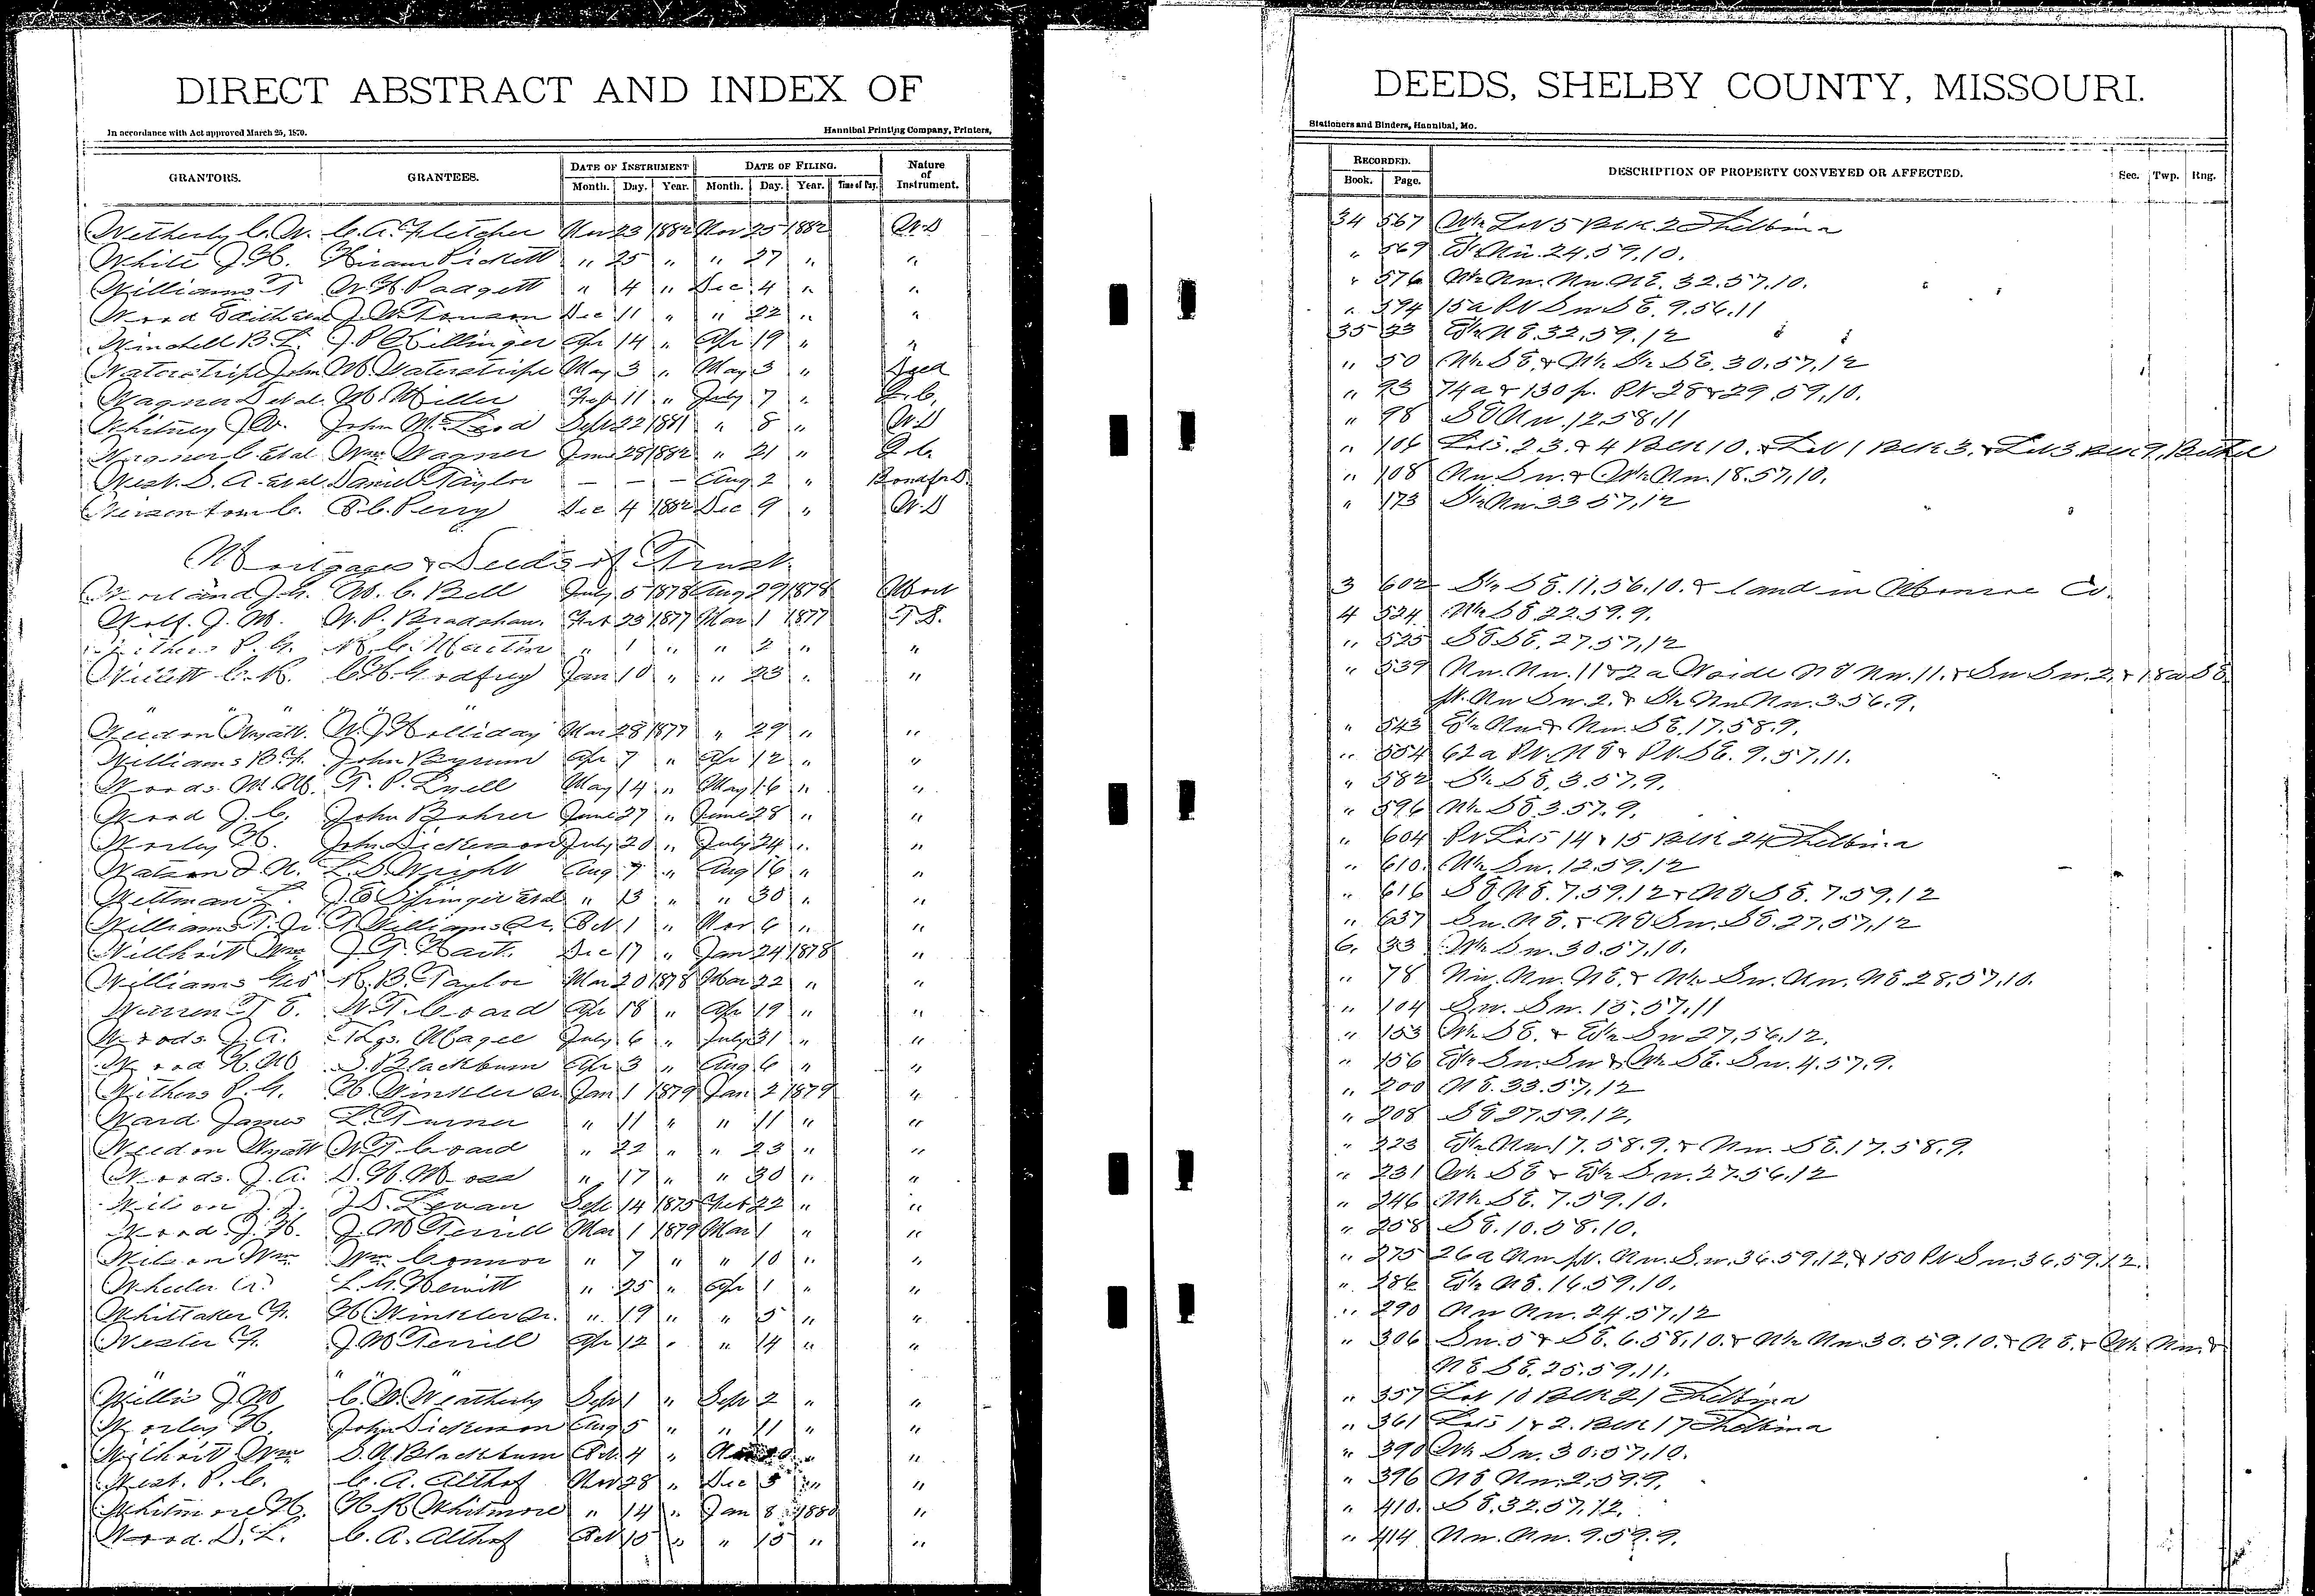 DIRECT ABSTRACT AND INDEX OF
DEEDS, SHELBY COUNTY, MISSOURI.
In accordance with Act approved March 25, 1870.
Hannibal Printing Company, Printers,
Stationers and Binders, Hannibal, Mo.
GRANTORS. GRANTEES. DATE OF INSTRUMENT DATE OF FILING. Nature of Instrument. RECORDED. DESCRIPTION OF PROPERTY CONVEYED OR AFFECTED. Sec. Twp. Rng.
Month. Day. Year. Month. Day. Year. Time of Day. Book. Page.
Wetherly C. W. C. A. Fletcher Nov 23 1882 Nov 25 1882 W.D 34 567 W½ Lot 5 Blk 2 Shelbina
White J. H. Hiram Pickett " 25 " " 27 " " " 569 E½ Nw. 24.59.10.
Williams T W. H. Padgett " 4 " Dec 4 " " " 576 Nw. Nw. NE. 32.57.10.
Wood J. W. Dec 11 " " 22 " " " 594 15a Pt Sw SE. 9.56.11
Winchell B. L. J. P. Apr 14 " Apr 19 " " 35 33 E½ NE. 32.59.12
Waterstripe John M. Waterstripe May 3 " May 3 " " 50 30.57.12
Wagner D et al. M. Miller Feb 11 " July 7 " Q.C. " 93 74a & 130 p. Pt 28 & 29.59.10.
Whitney J. W. John McLeod Sept 22 1881 " 8 " W.D " 98 SE Nw. 12.58.11
Wagner C. et al Wm Wagner June 28 1882 " 21 " Q.C. " 106 Lots 2.3.& 4 Blk 10. & Lot 1 Blk 3. & Lot 3 Blk 9, Bethel
West. S. A. et al. Daniel Taylor — — — Aug 2 " Bond for D. " 108 Nw. Sw. & W½ Nw. 18.57.10.
P. C. Perry Dec 4 1882 Dec 9 " W.D " 173 S½ Nw 33 57.12
Mortgages & Deeds of Trust.
M. C. Bell July 5 1878 Aug 29 1878 Mort 3 602 S½ SE. 11.56.10. & land in Monroe Co.
Wolf. J. M. W. P. Bradshaw. Feb 23 1877 Mar 1 1877 T.D. 4 524 N½ SE 22.59.9.
Withers P. G. N. C. Martin " 1 " " 2 " " " 525 SE SE. 27.57.12
Willett C. K. C. H. Godfrey Jan 10 " " 23 " " " 539 Nw. Nw. 11 & 2a W side NE Nw. 11. & Sw Sw. 2, & 18a SE
" " " " pt. Nw Sw. 2. & S½ Nw Nw. 3.56.9.
Weedon Wyatt. W. J. Holliday Mar 28 1877 " 29 " " " 543 E½ Nw & Nw. SE. 17.58.9.
Williams B. F. John Bynum Apr 7 " Apr 12 " " " 554 62a Pt. NE & Pt. SE. 9.57.11.
Woods. M. M. T. P. Lyell May 14 " May 16 " " " 582 S½ SE. 3.57.9.
Wood J. C. John Bohrer June 27 " June 28 " " " 596 N½ SE 3.57.9.
Worley H. John Dickerson July 20 " July 24 " " " 604 Pt Lots 14 & 15 Blk 24 Shelbina
Watson J. N. L. D. Wright Aug 7 " Aug 16 " " " 610. N½ Sw. 12.59.12
Wettman L. J. E. et al " 13 " " 30 " " " 616 SE NE. 7.59.12 & NE SE. 7.59.12
Williams T. Jr. T. Williams Sr. Oct 1 " Nov 6 " " " 637 Sw. NE. & NE Sw. SE. 27.57.12
Willhoit Wm J. T. Hart. Dec 17 " Jan 24 1878 " 6. 33 Sw. 30.57.10.
Williams Geo R. B. Taylor Mar 20 1878 Mar 22 " " " 78 Nw. Nw. NE. & N½ Sw. Nw. NE. 28.57.10.
Warren T. E. W. T. Coard Apr 18 " Apr 19 " " " 104 Sw. Sw. 15.57.11
Woods. J. A. Thos. Magee July 6 " July 31 " " " 153 W½ SE. & E½ Sw 27.56.12.
Wood H. M. S. Blackburn Apr 3 " Aug 6 " " " 156 E½ Sw. Sw & W½ SE. Sw. 4.57.9.
Withers P. G. H. Winkler Sr. Jan 1 1879 Jan 2 1879 " " 200 NE. 33.57.12
Ward James L. Turner " 11 " " 11 " " " 208 SE 27.59.12.
Weedon Wyatt W. T. Coard " 22 " " 23 " " " 223 E½ Nw. 17.58.9. & Nw. SE. 17.58.9.
Woods. J. A. D. H. Moss " 17 " " 30 " " " 231 W½ SE & E½ Sw. 27.56.12
Wilson J. J. J. D. Levan Sept 14 1875 Feb 22 " " " 246 N½ SE. 7.59.10.
Wood J. H. J. M. Terrill Mar 1 1879 Mar 1 " " " 258 SE. 10.58.10.
Wilson Wm Wm Connor " 7 " " 10 " " " 275 26a Nw pt. Nw. Sw. 36.59.12, & 150 Pt Sw. 36.59.12.
Wheeler A. L. G. Hewitt " 25 " Apr 1 " " " 286 E½ NE. 16.59.10.
Whittaker F. H. Winkler Sr. " 19 " " 5 " " " 290 Nw Nw. 24.57.12
Wester F. J. M. Terrill Apr 12 " " 14 " " " 306 Sw. 5 & SE. 6.58.10. & N½ Nw. 30.59.10. & NE. & W½ Nw. &
" " " " NE SE. 25.59.11.
Willis J. M. C. W. Weatherly Sept 1 " Sept 2 " " " 357 Lot 10 Blk 21 Shelbina
Worley H. John Dickerson Aug 5 " " 11 " " " 361 Lots 1 & 2. Blk 17 Shelbina
Wilhoit Wm S. A. Blackburn Oct 4 " " " " 390 W½ Sw. 30.57.10.
West. P. C. C. A. Althof Nov 28 " Dec 5 " " " 396 NE Nw. 2.59.9.
Whitmore H. H. K. Whitmore " 14 " Jan 8 1880 " " 410. SE. 32.57.12.
Wood. D. L. C. A. Althof Oct 15 " " 15 " " " 414 Nw. Nw. 9.59.9.